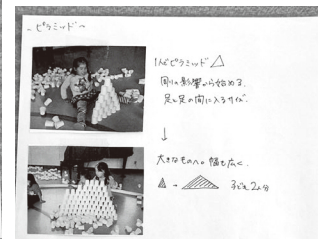 ~ピラミッド~
1人でピラミッド
周りの影響から始める。
足と足の間に入るサイズ
↓
大きなものへ。幅も広く。
子ども2人分